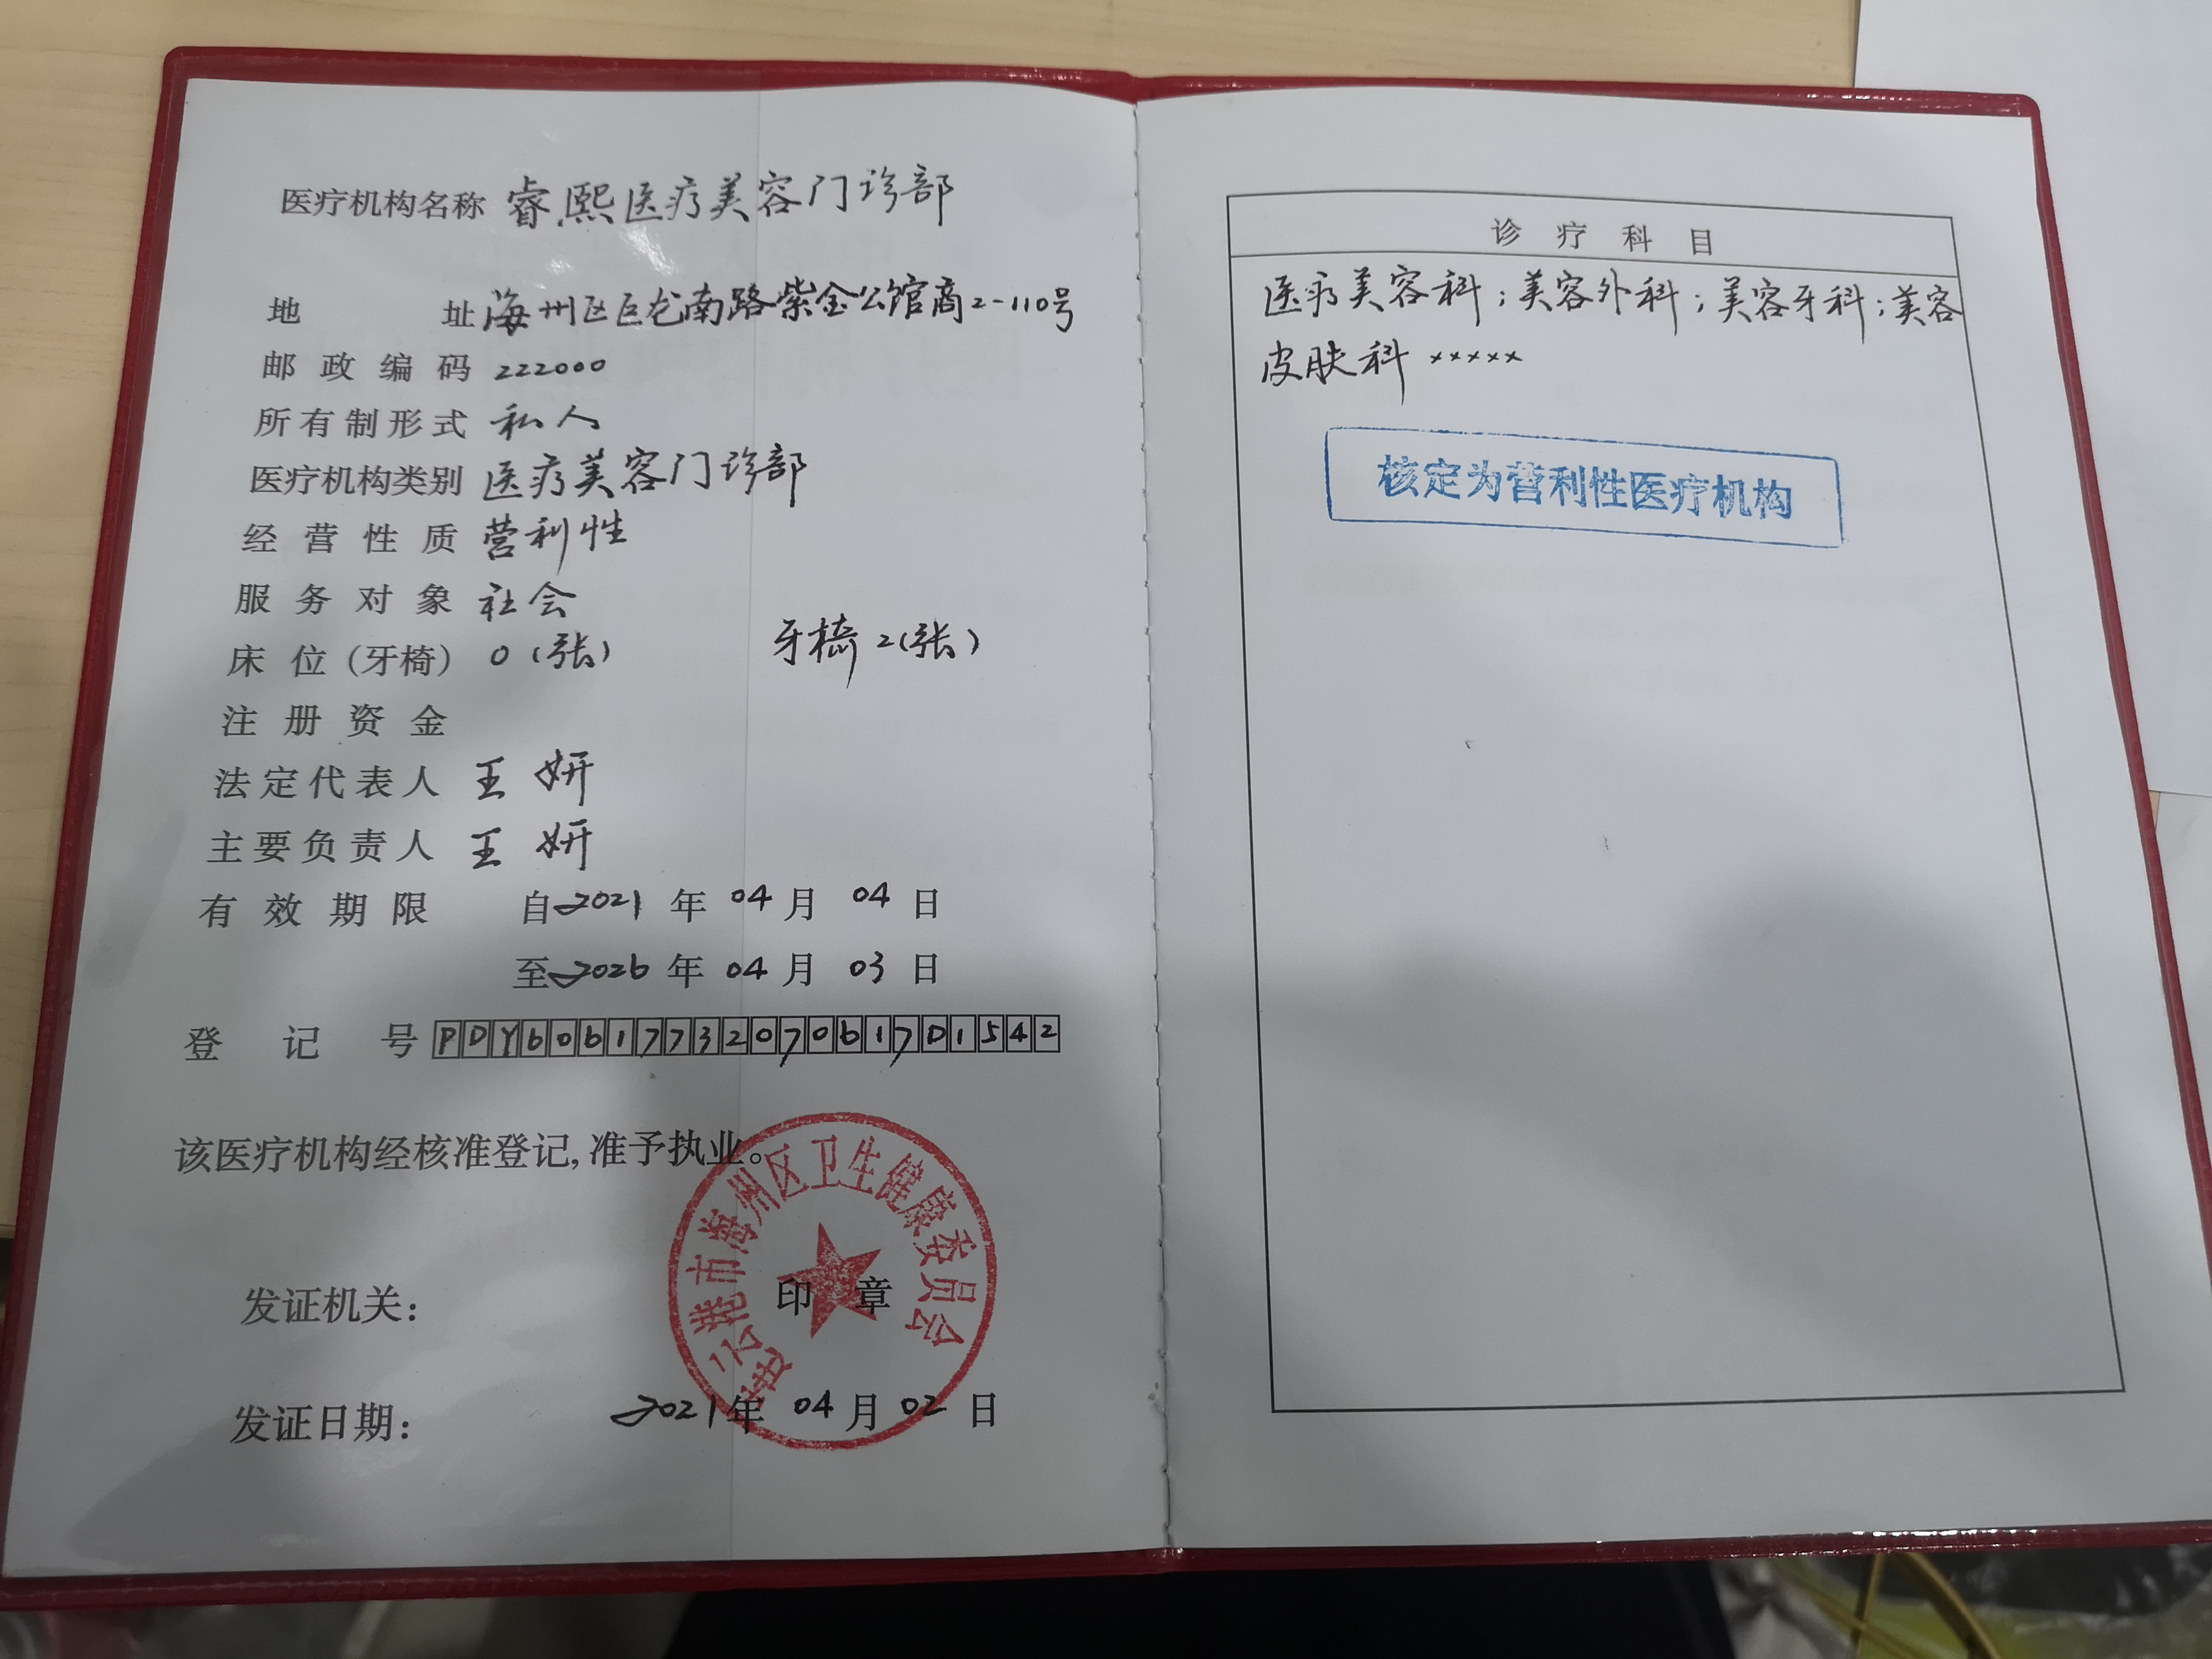 医疗机构名称 睿熙医疗美容门诊部
地址 海州区巨龙南路紫金公馆商2-110号
邮政编码 222000
所有制形式 私人
医疗机构类别 医疗美容门诊部
经营性质 营利性
服务对象 社会
床位(牙椅) 0(张) 牙椅2(张)
注册资金
法定代表人 王妍
主要负责人 王妍
有效期限 自2021年04月04日
至2026年04月03日
登记号 PDY60617732070617D1542
该医疗机构经核准登记,准予执业。
发证机关:
印章
连云港市海州区卫生健康委员会
发证日期: 2021年04月02日
诊疗科目
医疗美容科;美容外科;美容牙科;美容
皮肤科×××××
核定为营利性医疗机构